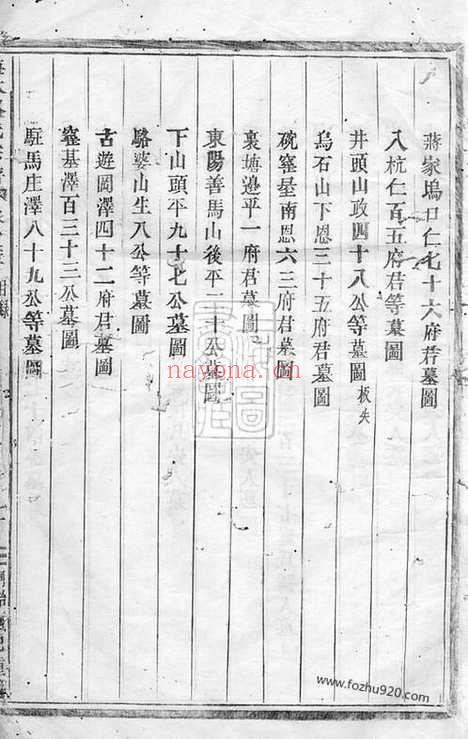 蔣家塢口仁七十六府君墓圖
入杭仁百五府君等墓圖
井頭山政四十八公等墓圖板失
烏石山下恩三十五府君墓圖
碗窰基南恩六三府君墓圖
裏塘邉平一府君墓圖
東陽善馬山後平二十公墓圖
下山頭平九十七公墓圖
駱婆山生八公等墓圖
古遊岡澤四十二府君墓圖
窰基澤百三十三公墓圖
駐馬庄澤八十九公等墓圖
nayona.cn
www.fozhu920.com